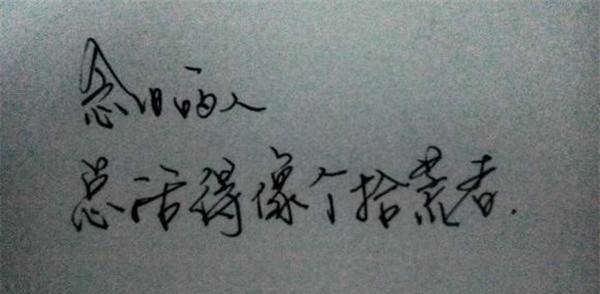 念旧的人
总活得像个拾荒者.